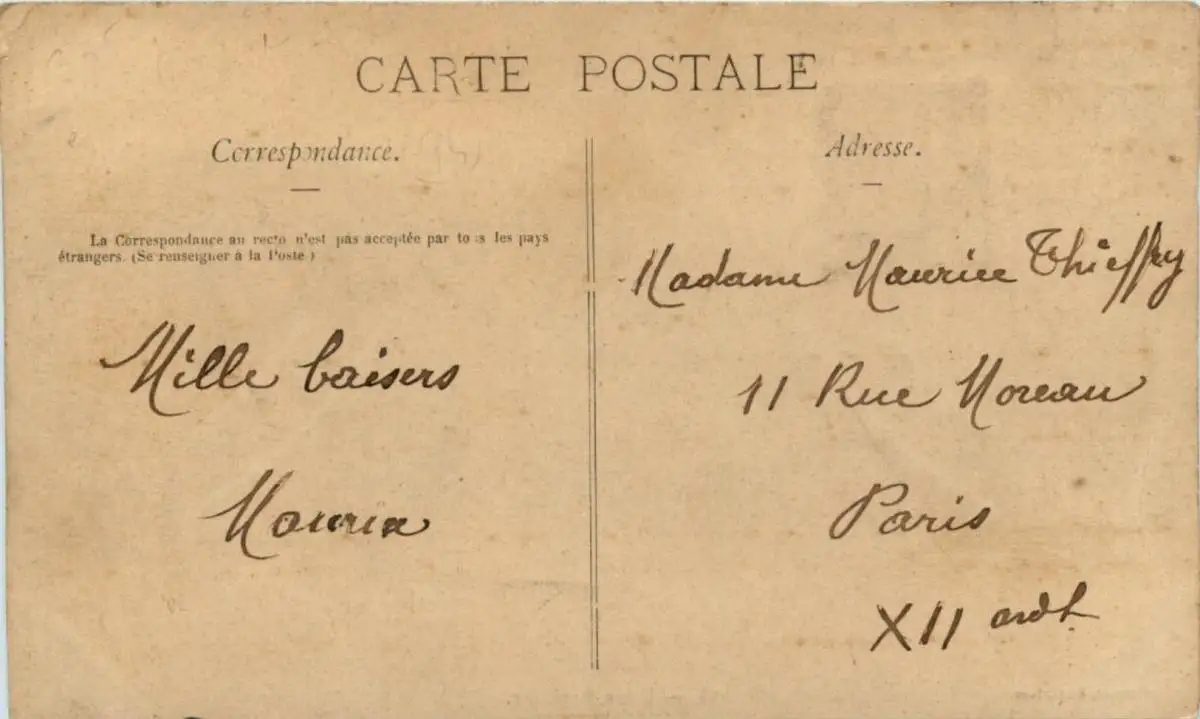 CARTE POSTALE
Correspondance.
La Correspondance au recto n'est pas acceptée par tous les pays
étrangers. (Se renseigner à la Poste)
Mille baisers
Maurice
Adresse.
Madame Maurice Thieffry
11 Rue Moreau
Paris
XII ardt